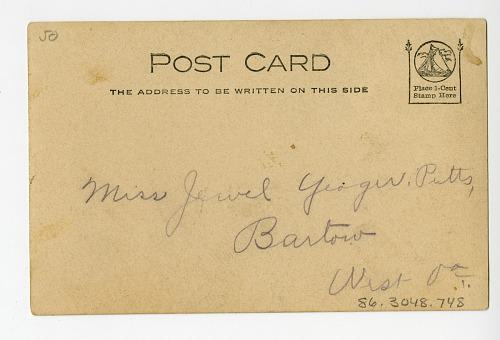 50
POST CARD
THE ADDRESS TO BE WRITTEN ON THIS SIDE
Place 1-Cent
Stamp Here
Miss Jewel Yeager, Pitts,
Bartow
West Va.
86.3048.748